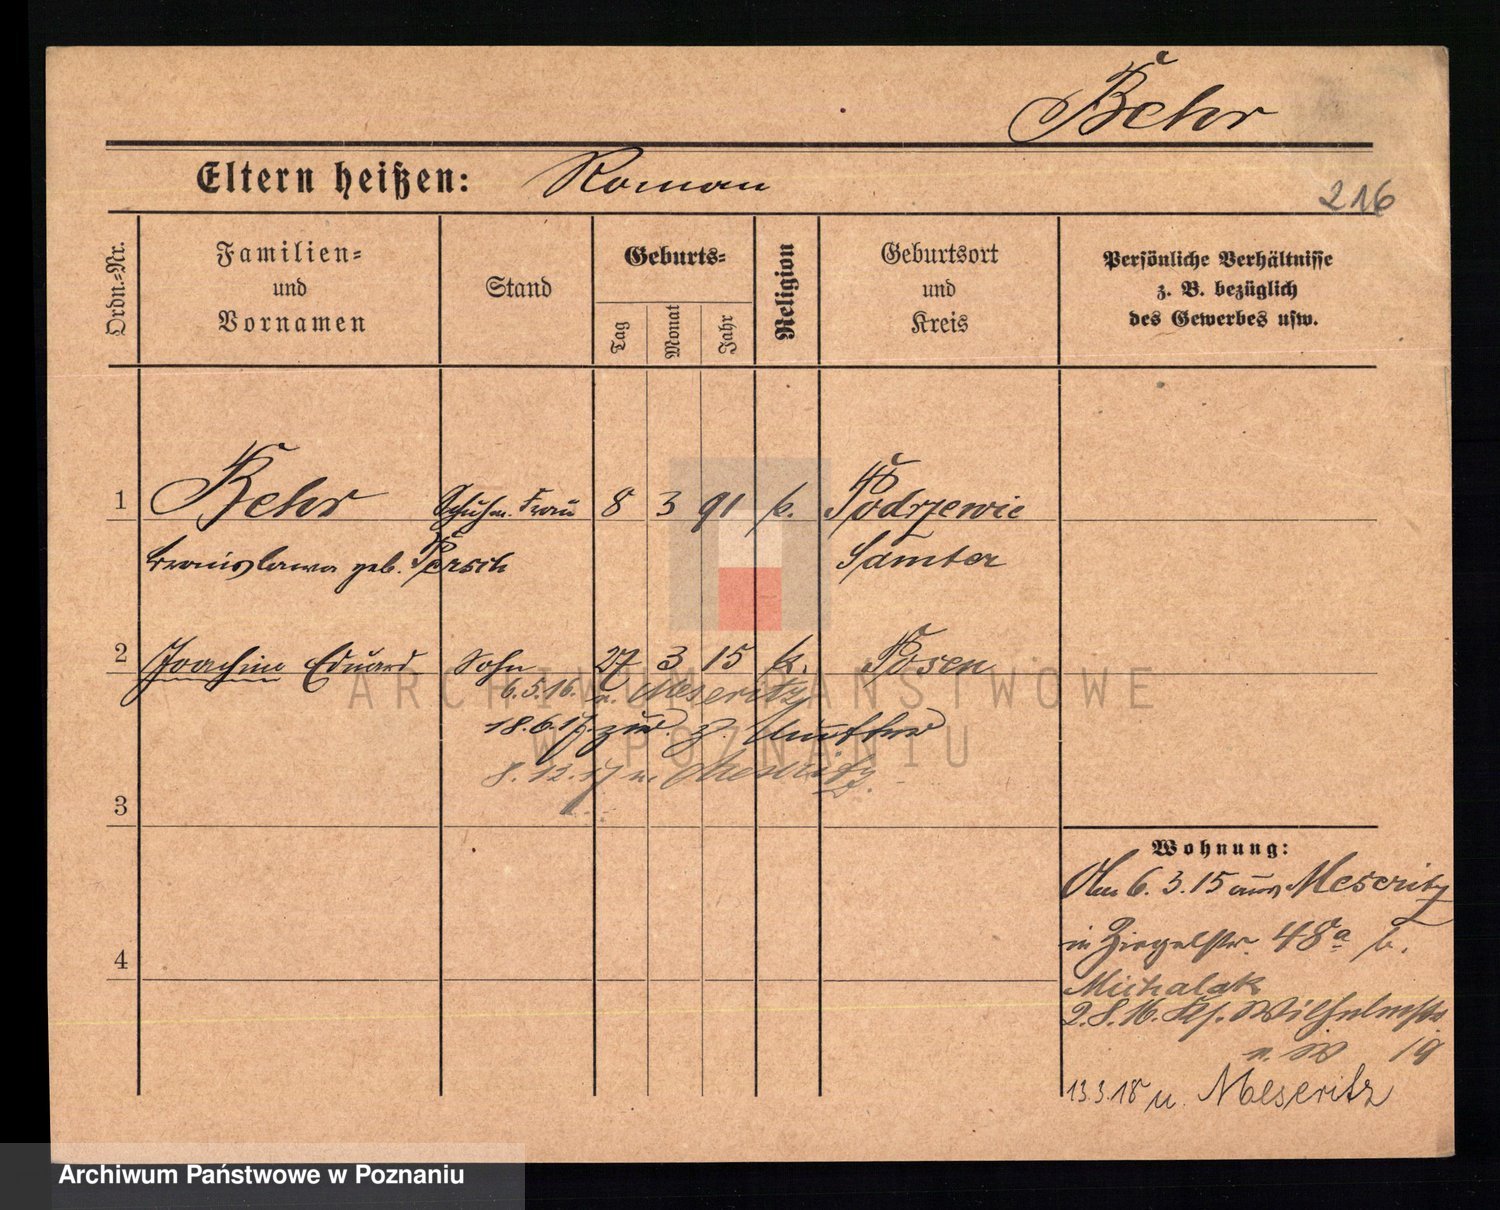 Behr
Eltern heißen: Roman
216
Ordn.=Nr.
Familien=
und
Vornamen
Stand
Geburts=
Tag
Monat
Jahr
Religion
Geburtsort
und
Kreis
Persönliche Verhältnisse
z. B. bezüglich
des Gewerbes usw.
1 Behr Schuhm. Frau 8 3 91 k. Podrzewie
geb. Persch Samter
2 Joachim Eduard Sohn 27 3 15 k. Posen
6.5.16. n. Meseritz
18.6.17. zur. z. Mutter
8.12.17 n. Meseritz
3
4
Wohnung:
6.3.15 aus Meseritz
in Ziegelstr. 48a b.
Michalak
2.8.16. Wilhelmstr.
19
13.3.18 n. Meseritz
ARCHIWUM PAŃSTWOWE
W POZNANIU
Archiwum Państwowe w Poznaniu